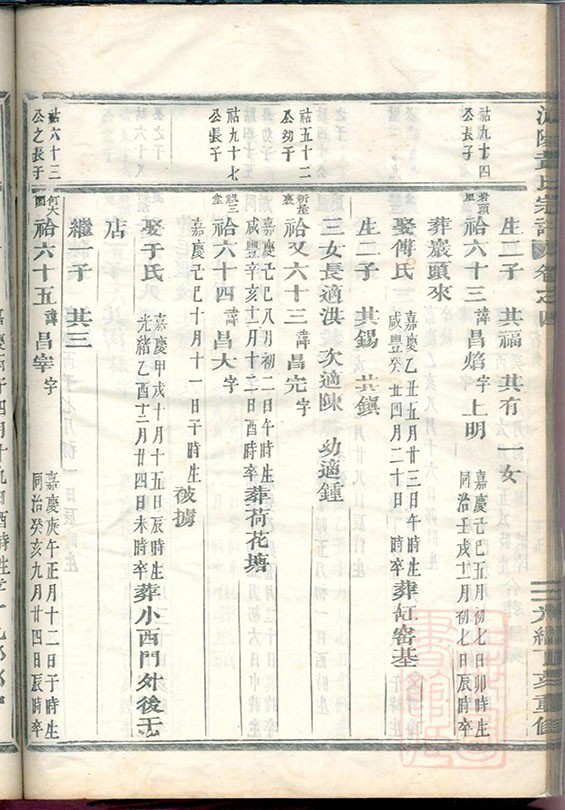 生二子 共福 共有 一女
祜九十四公長子
岩頭里 祫六十三 諱昌焰 字上明 嘉慶己巳五月初七日卯時生 同治壬戌十二月初七日辰時卒
葬巖頭來
娶傅氏 嘉慶乙丑五月廿三日午時生 咸豐癸丑四月二十日 時卒 葬缸窰基
生二子 共錫 共鎮
三女長適洪 次適陳 幼適鍾
祜五十二公幼子
祫又六十三 諱昌完 字
嘉慶己巳八月初二日午時生 咸豐辛亥十二月十二日酉時卒 葬荷花塘
祜九十七公長子
祫六十四 諱昌大 字
嘉慶己巳十月十一日子時生 被擄
娶于氏 嘉慶甲戌十月十五日辰時生 光緒乙酉十二月廿四日未時卒 葬小西門外後王
店
繼一子 共三
祜六十三公之長子
祫六十五 諱昌宰 字 嘉慶庚午正月十二日子時生 同治癸亥九月廿四日辰時卒